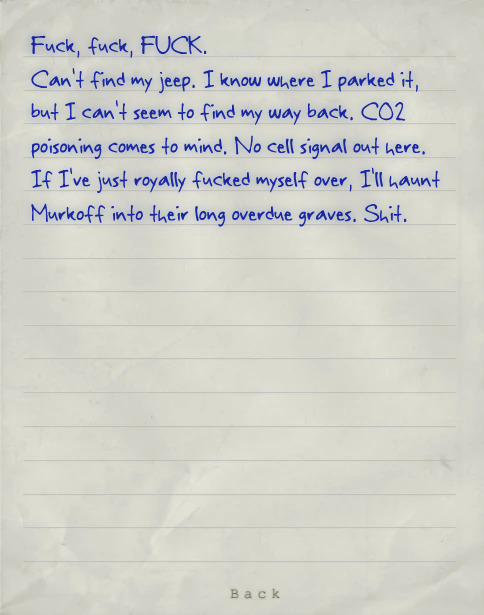 Fuck, fuck, FUCK.
Can't find my jeep. I know where I parked it,
but I can't seem to find my way back. CO2
poisoning comes to mind. No cell signal out here.
If I've just royally fucked myself over, I'll haunt
Murkoff into their long overdue graves. Shit.
Back